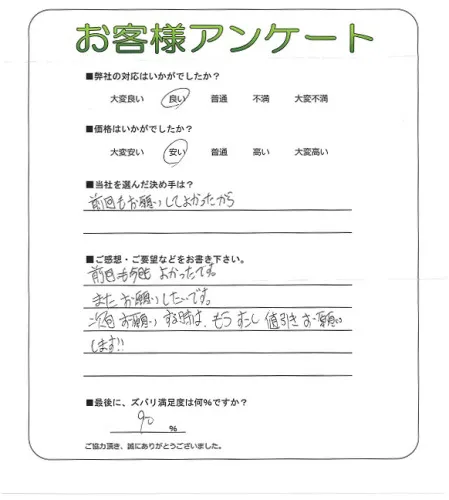 お客様アンケート
■弊社の対応はいかがでしたか？
大変良い 良い 普通 不満 大変不満
■価格はいかがでしたか？
大変安い 安い 普通 高い 大変高い
■当社を選んだ決め手は？
前回もお願いしてよかったから
■ご感想・ご要望などをお書き下さい。
前回も今回も よかったです。
また お願いしたいです。
次回 お願いする時は、もう すこし 値引き お願い
します!!
■最後に、ズバリ満足度は何%ですか？
90 %
ご協力頂き、誠にありがとうございました。